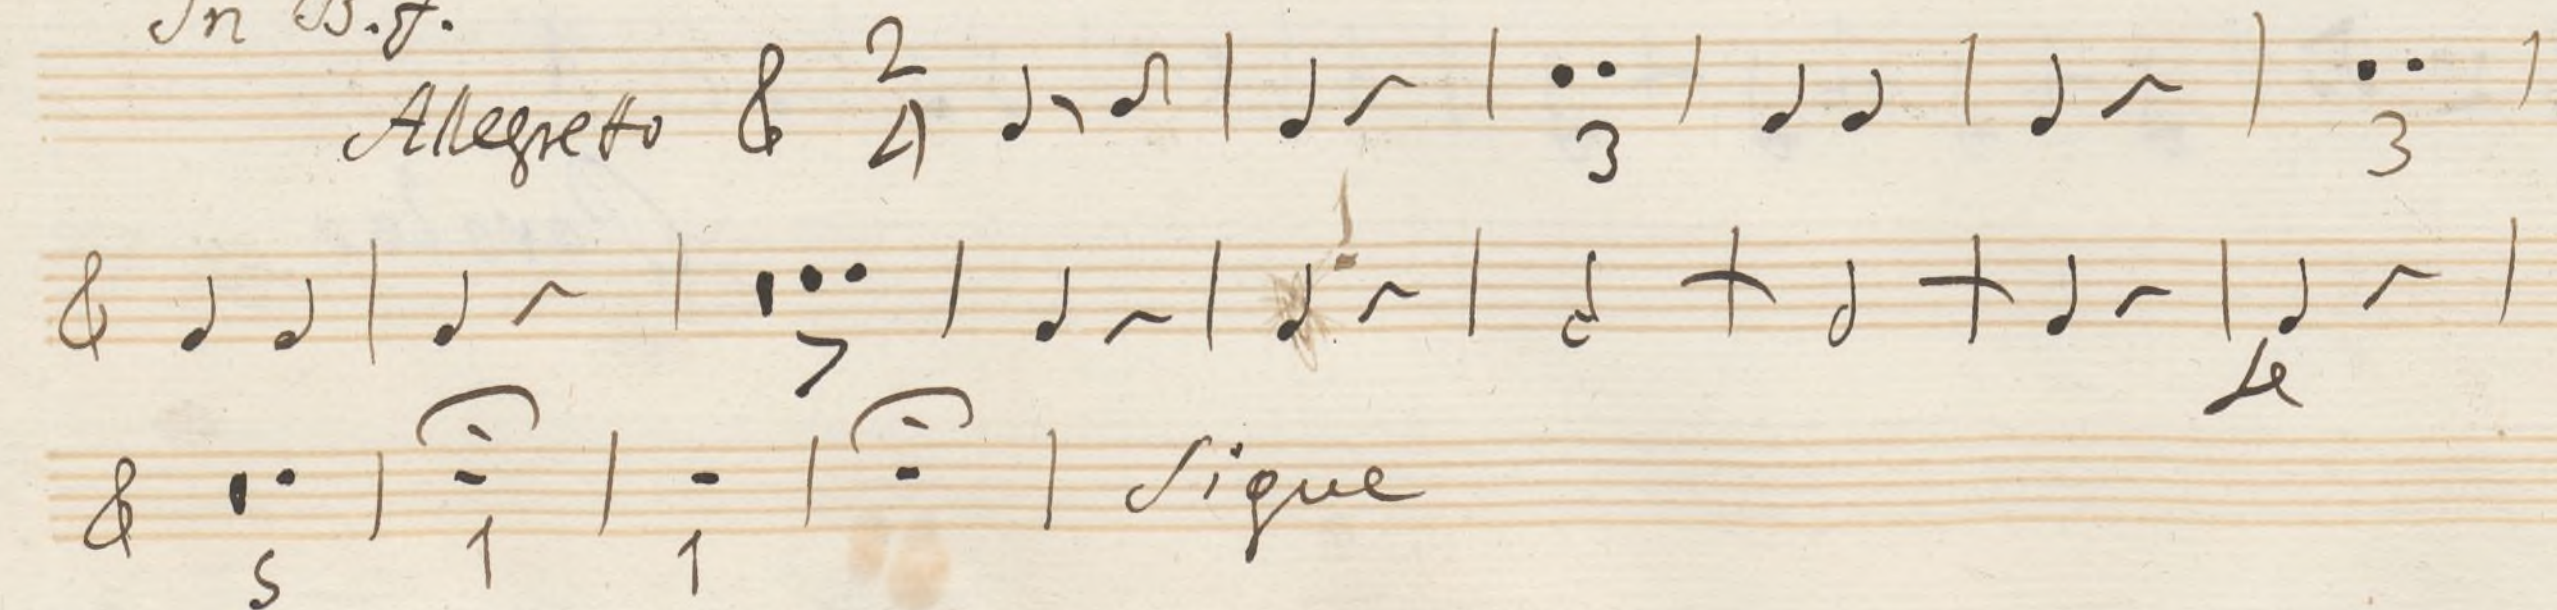 In B.f.
Allegretto 2/4
3 3
7
5 1 1 Sigue